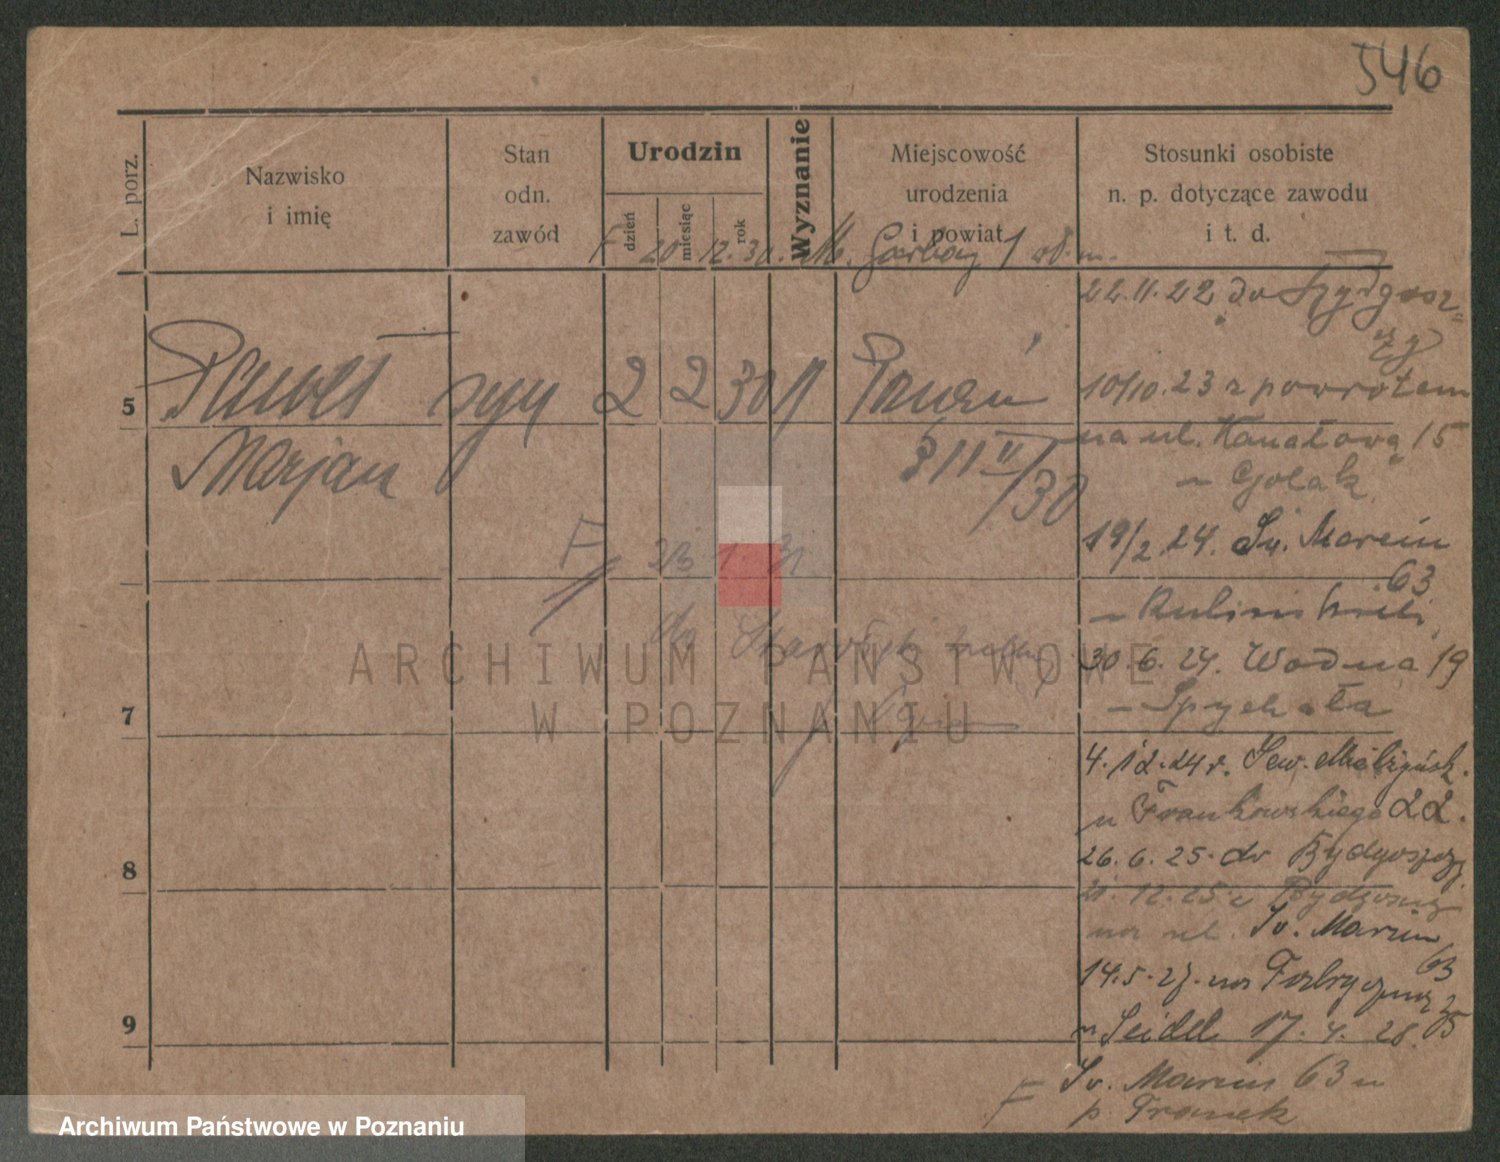 546
L. porz.
Nazwisko
i imię
Stan
odn.
zawód
Urodzin
dzień
miesiąc
rok
Wyznanie
Miejscowość
urodzenia
i powiat
Stosunki osobiste
n. p. dotyczące zawodu
i t. d.
F 20 12. 30. M. Garbary 1
22.11.22 do Bydgosz=
czy
5
Paweł syn 2 2 30
10/10.23 z powrotem
Marjan
na ul. Kanałową 15
3 11 II/30
~ Golak
19/2.24. Św. Marcin
63
F 23 1. 31
30.6.24. Wodna 19
ARCHIWUM PAŃSTWOWE
W POZNANIU
7
~ Spychała
4.12.24r. Sew. Mielżyńsk.
u Frankowskiego 22.
8
26.6.25. do Bydgoszczy
21.12.25 z Bydgoszczy
na ul. Św. Marcin
63
14.5.27. na Fabryczną 35
9
u Seidel 17. 4. 28.
F Św. Marcin 63 u
p. Franek
Archiwum Państwowe w Poznaniu